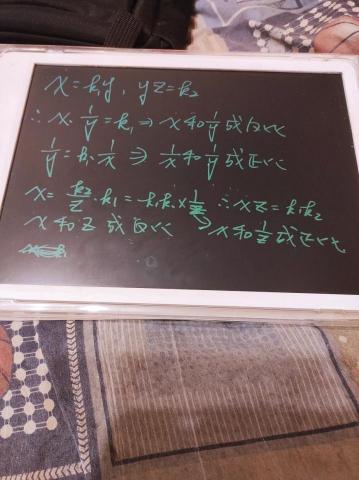 x=k₁y, yz=k₂
∴ x·1/y=k₁ ⇒ x和1/y成反比
1/y=k₁·1/x ⇒ 1/x和1/y成正比
x=k₂/z·k₁=k₁k₂×1/z ∴xz=k₁k₂
x和z成反比 ⇒ x和1/z成正比